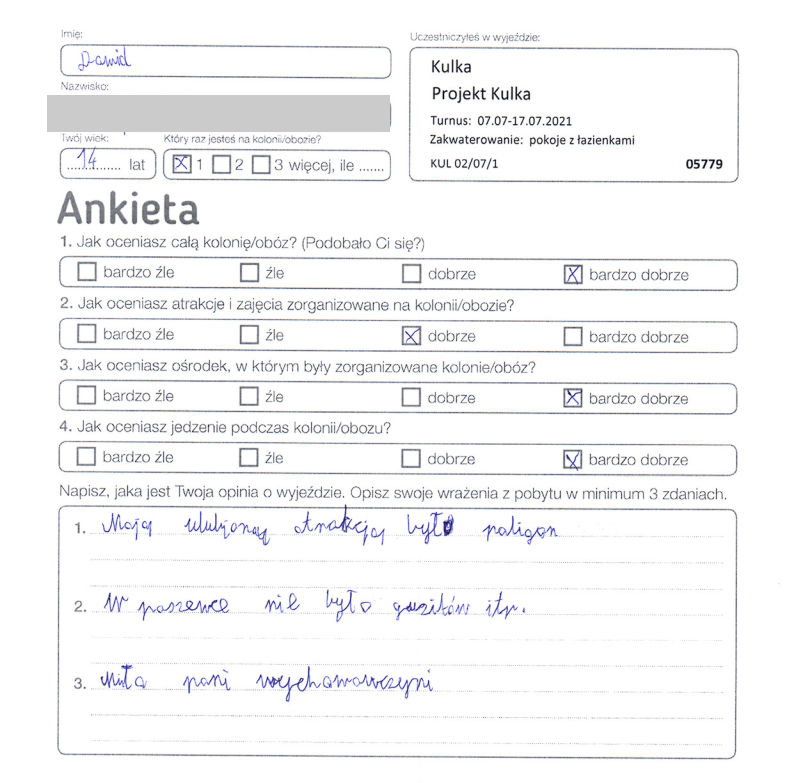 Imię:
Dawid
Uczestniczyłeś w wyjeździe:
Kulka
Projekt Kulka
Turnus: 07.07-17.07.2021
Zakwaterowanie: pokoje z łazienkami
KUL 02/07/1 05779
Nazwisko:
Twój wiek:
14 lat
Który raz jesteś na kolonii/obozie?
1 2 3 więcej, ile .......
Ankieta
1. Jak oceniasz całą kolonię/obóz? (Podobało Ci się?)
bardzo źle źle dobrze bardzo dobrze
2. Jak oceniasz atrakcje i zajęcia zorganizowane na kolonii/obozie?
bardzo źle źle dobrze bardzo dobrze
3. Jak oceniasz ośrodek, w którym były zorganizowane kolonie/obóz?
bardzo źle źle dobrze bardzo dobrze
4. Jak oceniasz jedzenie podczas kolonii/obozu?
bardzo źle źle dobrze bardzo dobrze
Napisz, jaka jest Twoja opinia o wyjeździe. Opisz swoje wrażenia z pobytu w minimum 3 zdaniach.
1. Moją ulubioną atrakcją był poligon
2. W nie było itp.
3. Miła pani wychowawczyni